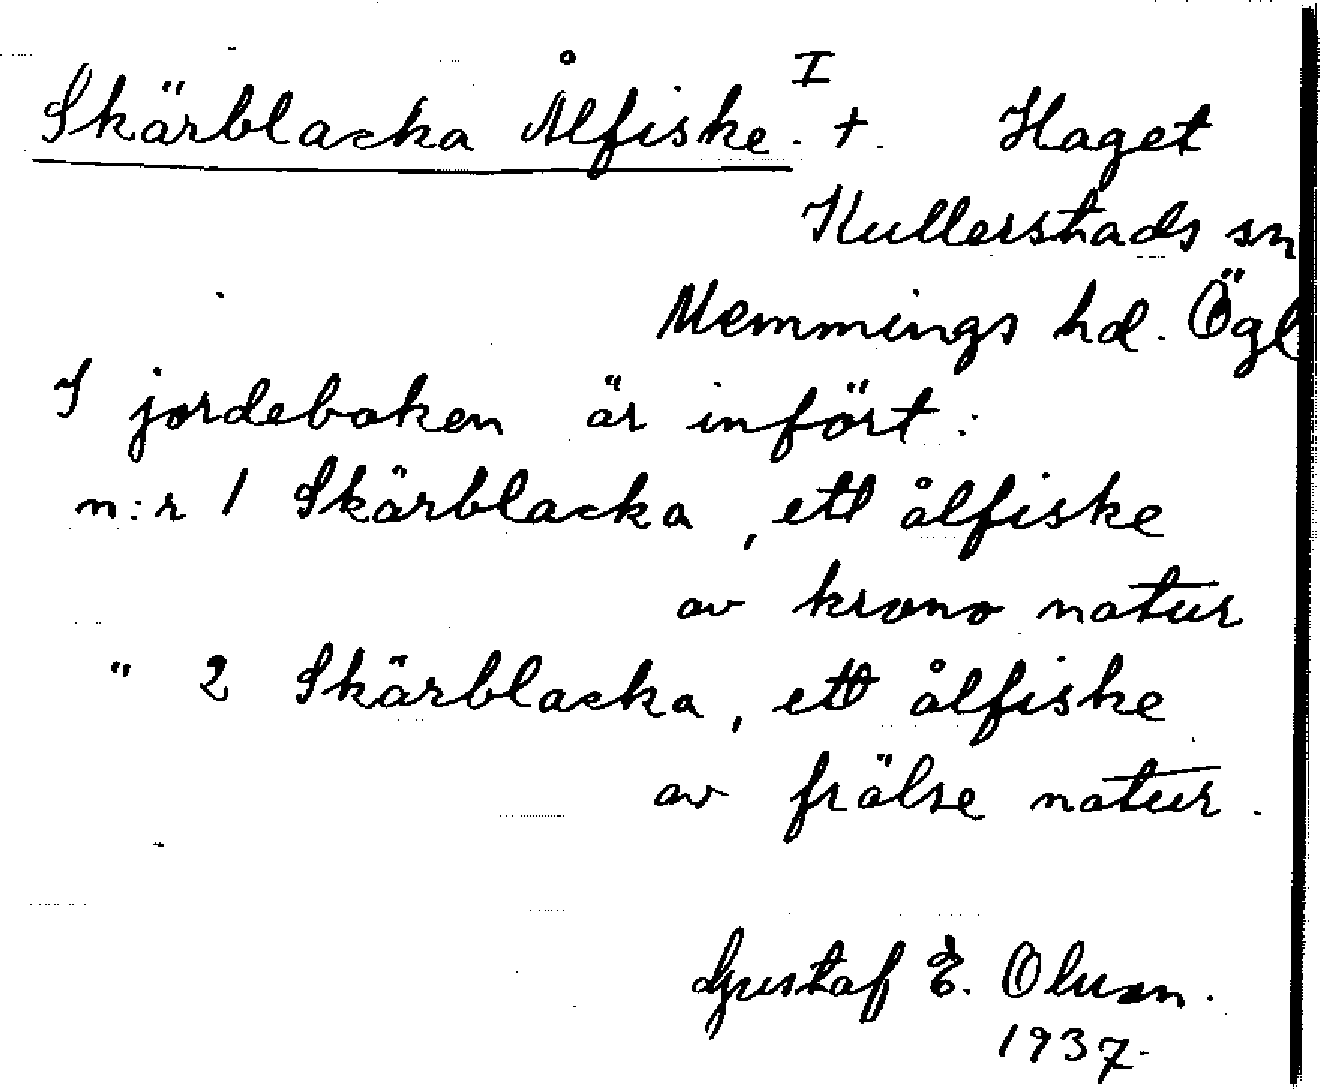 Skärblacka Ålfiske. I +. Haget
Kullerstads sn
Memmings hd. Ögl
I jordeboken är infört:
n:r 1 Skärblacka, ett ålfiske
av krono natur
" 2 Skärblacka, ett ålfiske
av frälse natur.
Gustaf E. Olsson.
1937.